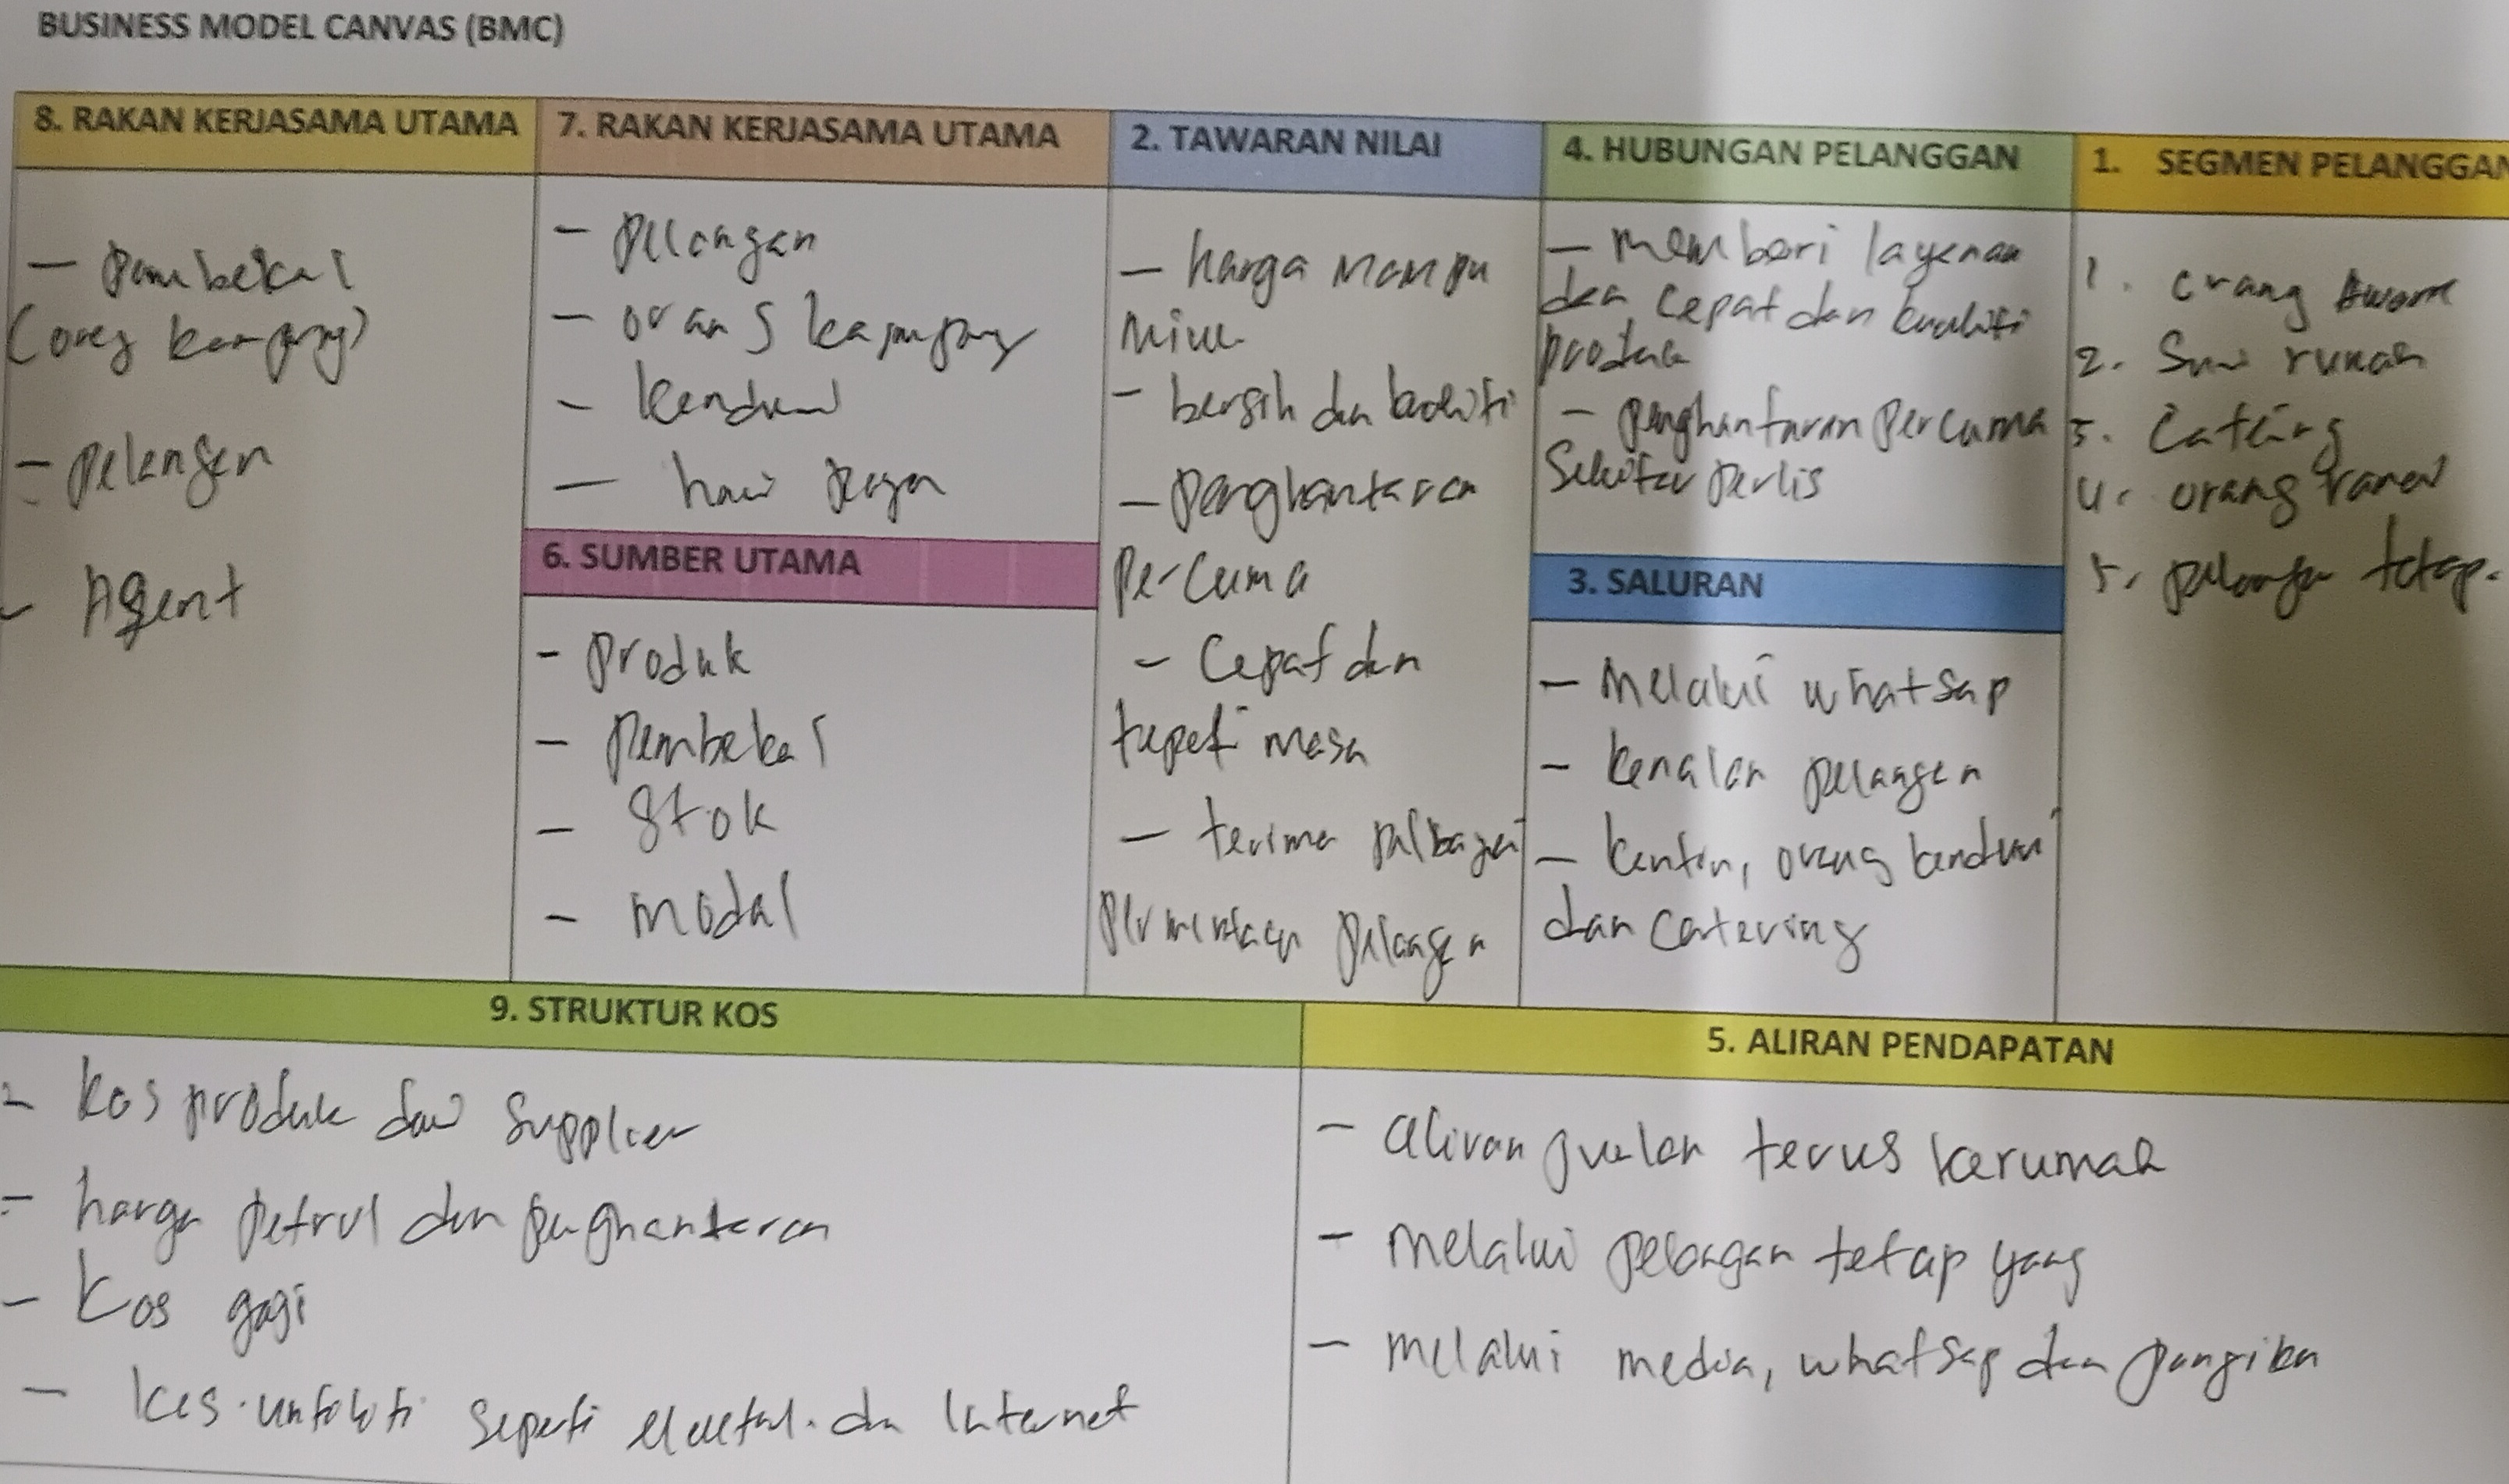 BUSINESS MODEL CANVAS (BMC)
8. RAKAN KERJASAMA UTAMA
- Pembekal
(oreg kampng)
- pelangen
- Agent
7. RAKAN KERJASAMA UTAMA
- pelangan
- orang kampung
- kenduri
- hari raya
6. SUMBER UTAMA
- Produk
- Pembekal
- Stok
- modal
2. TAWARAN NILAI
- harga mampu
milik
- bersih dan kualiti
- Penghantaran
Percuma
- Cepat dan
tepat masa
- terima pelbagai
permintaan pelangan
4. HUBUNGAN PELANGGAN
- memberi layanan
dan cepat dan kualiti
produk
- penghantaran Percuma
Sekitar Perlis
3. SALURAN
- Melalui whatsap
- kenalan pelangan
- kantin, orang kenduri
dan catering
1. SEGMEN PELANGGAN
1. orang
2. Suri rumah
3. Catering
4. orang ramai
5. pelangan tetap.
9. STRUKTUR KOS
- Kos produk dari Supplier
- harga petrol dan penghantaran
- Kos gaji
- kos utiliti seperti dan Internet
5. ALIRAN PENDAPATAN
- aliran jualan terus kerumah
- Melalui pelangan tetap yang
- Melalui media, whatsap dan